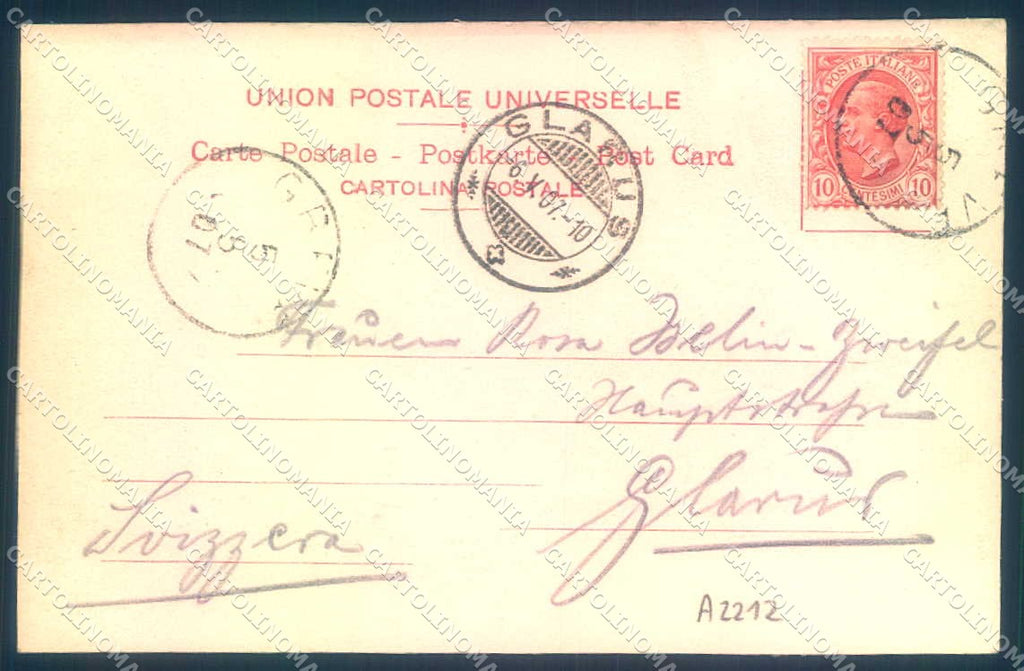 UNION POSTALE UNIVERSELLE
Carte Postale - Postkarte - Post Card
CARTOLINA POSTALE
POSTE ITALIANE
10 CENTESIMI 10
GLARUS
6.X.07.-10
5
07
5
07
Rosa
Hauptstrasse
Glarus
Svizzera
A2212
CARTOLINOMANIA